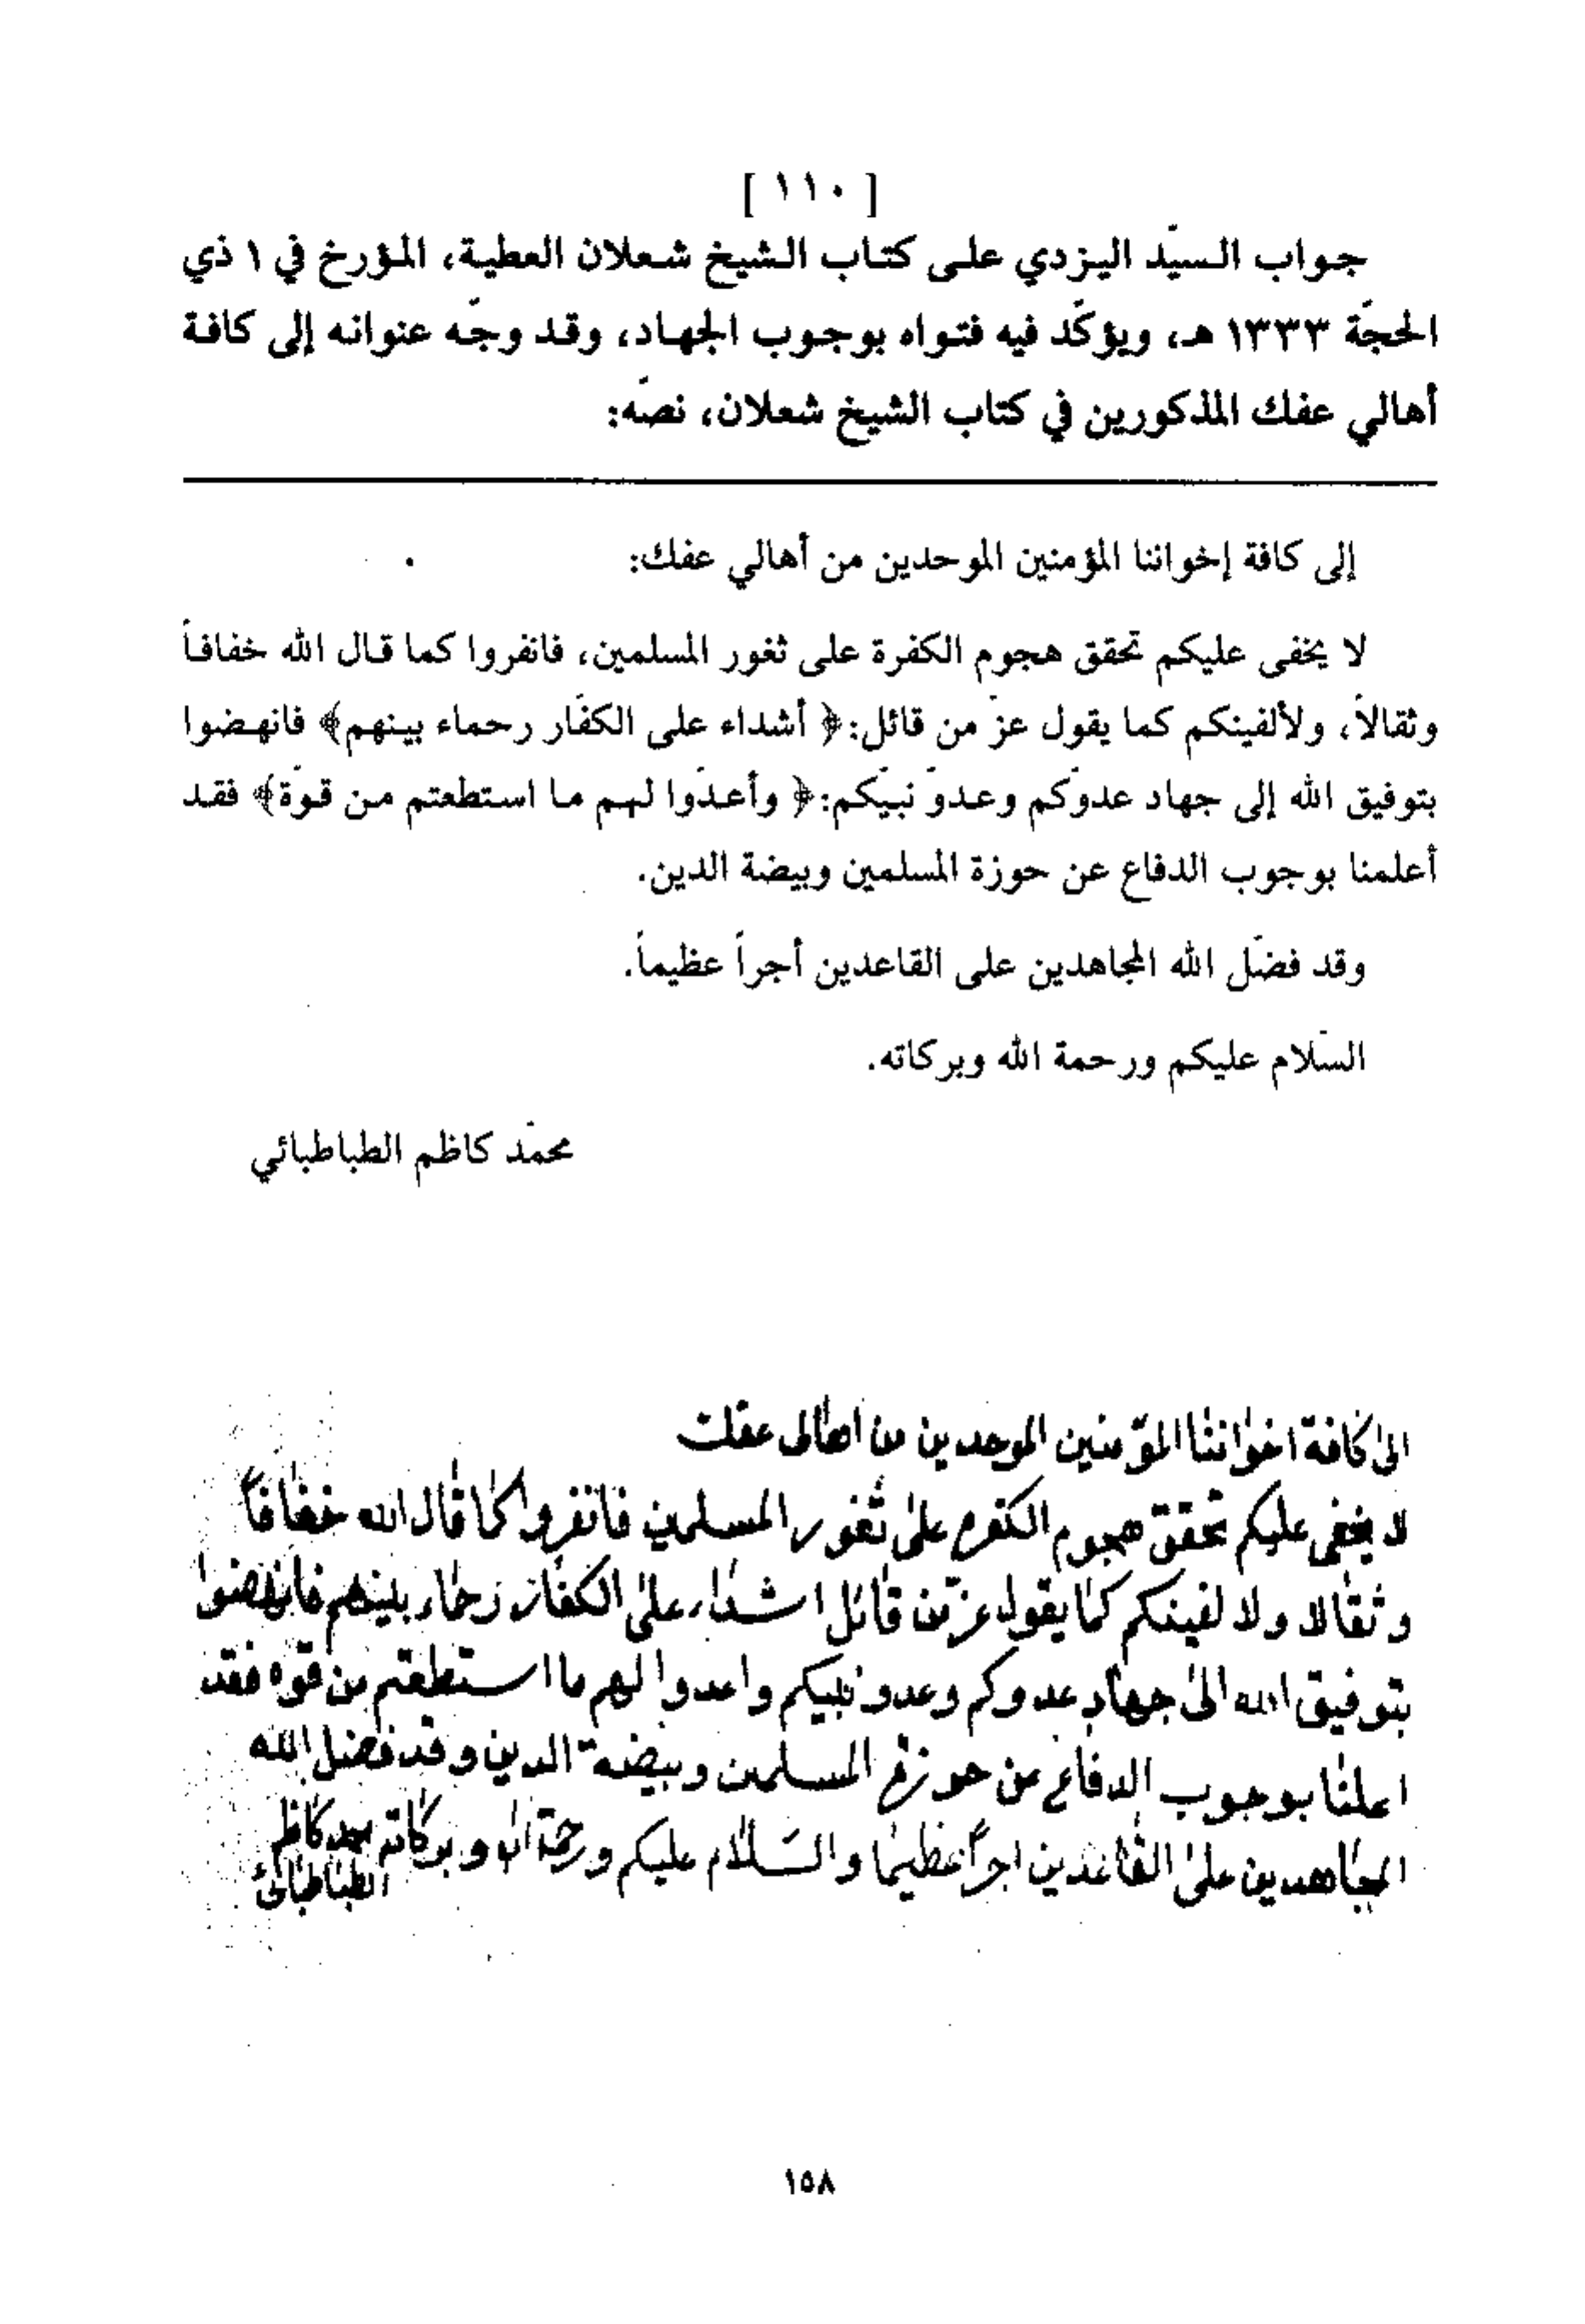 [ ١١٠ ]
جواب السيّد اليزدي على كتاب الشيخ شعلان العطية، المؤرخ في ١ ذي
الحجّة ١٣٣٣ هـ، ويؤكّد فيه فتواه بوجوب الجهاد، وقد وجّه عنوانه إلى كافة
أهالي عفك المذكورين في كتاب الشيخ شعلان، نصّه:
إلى كافة إخواننا المؤمنين الموحدين من أهالي عفك:
لا يخفى عليكم تحقق هجوم الكفرة على ثغور المسلمين، فانفروا كما قال الله خفافاً
وثقالاً، ولألفينكم كما يقول عزّ من قائل: ﴿أشداء على الكفّار رحماء بينهم﴾ فانهضوا
بتوفيق الله إلى جهاد عدوّكم وعدوّ نبيّكم: ﴿وأعدّوا لهم ما استطعتم من قوّة﴾ فقد
أعلمنا بوجوب الدفاع عن حوزة المسلمين وبيضة الدين.
وقد فضّل الله المجاهدين على القاعدين أجراً عظيماً.
السّلام عليكم ورحمة الله وبركاته.
محمّد كاظم الطباطبائي
الى كافة اخواننا المؤمنين الموحدين من اهالى عفك
لا يخفى عليكم تحقق هجوم الكفره على ثغور المسلمين فانفروا كما قال الله خفافاً
وثقالا ولا لفينكم كما يقول عزّ من قائل اشداء على الكفار رحماء بينهم فانهضوا
بتوفيق الله الى جهاد عدوكم وعدو نبيكم واعدوا لهم ما استطعتم من قوه فقد
اعلمنا بوجوب الدفاع عن حوزة المسلمين وبيضة الدين وقد فضل الله
المجاهدين على القاعدين اجراً عظيما والسّلام عليكم ورحمة الله وبركاته محمد كاظم
الطباطبائى
١٥٨